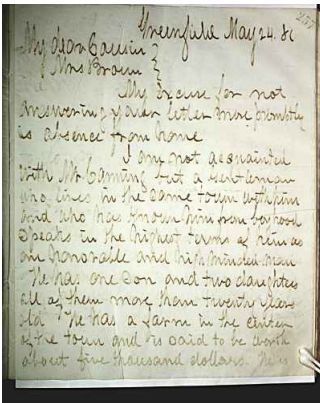 Greenfield May 24. 86
257
My dear Cousin
Mrs Brown
My excuse for not
answering your letter more promptly
is absence from home
I am not acquainted
with Mr Canning but a gentleman
who lives in the same town with him
and who has known him from boyhood
speaks in the highest terms of him as
an honorable and high minded man
He has one Son and two daughters
all of them more than twenty years
old He has a farm in the center
of the town and is said to be worth
about five thousand dollars. He is